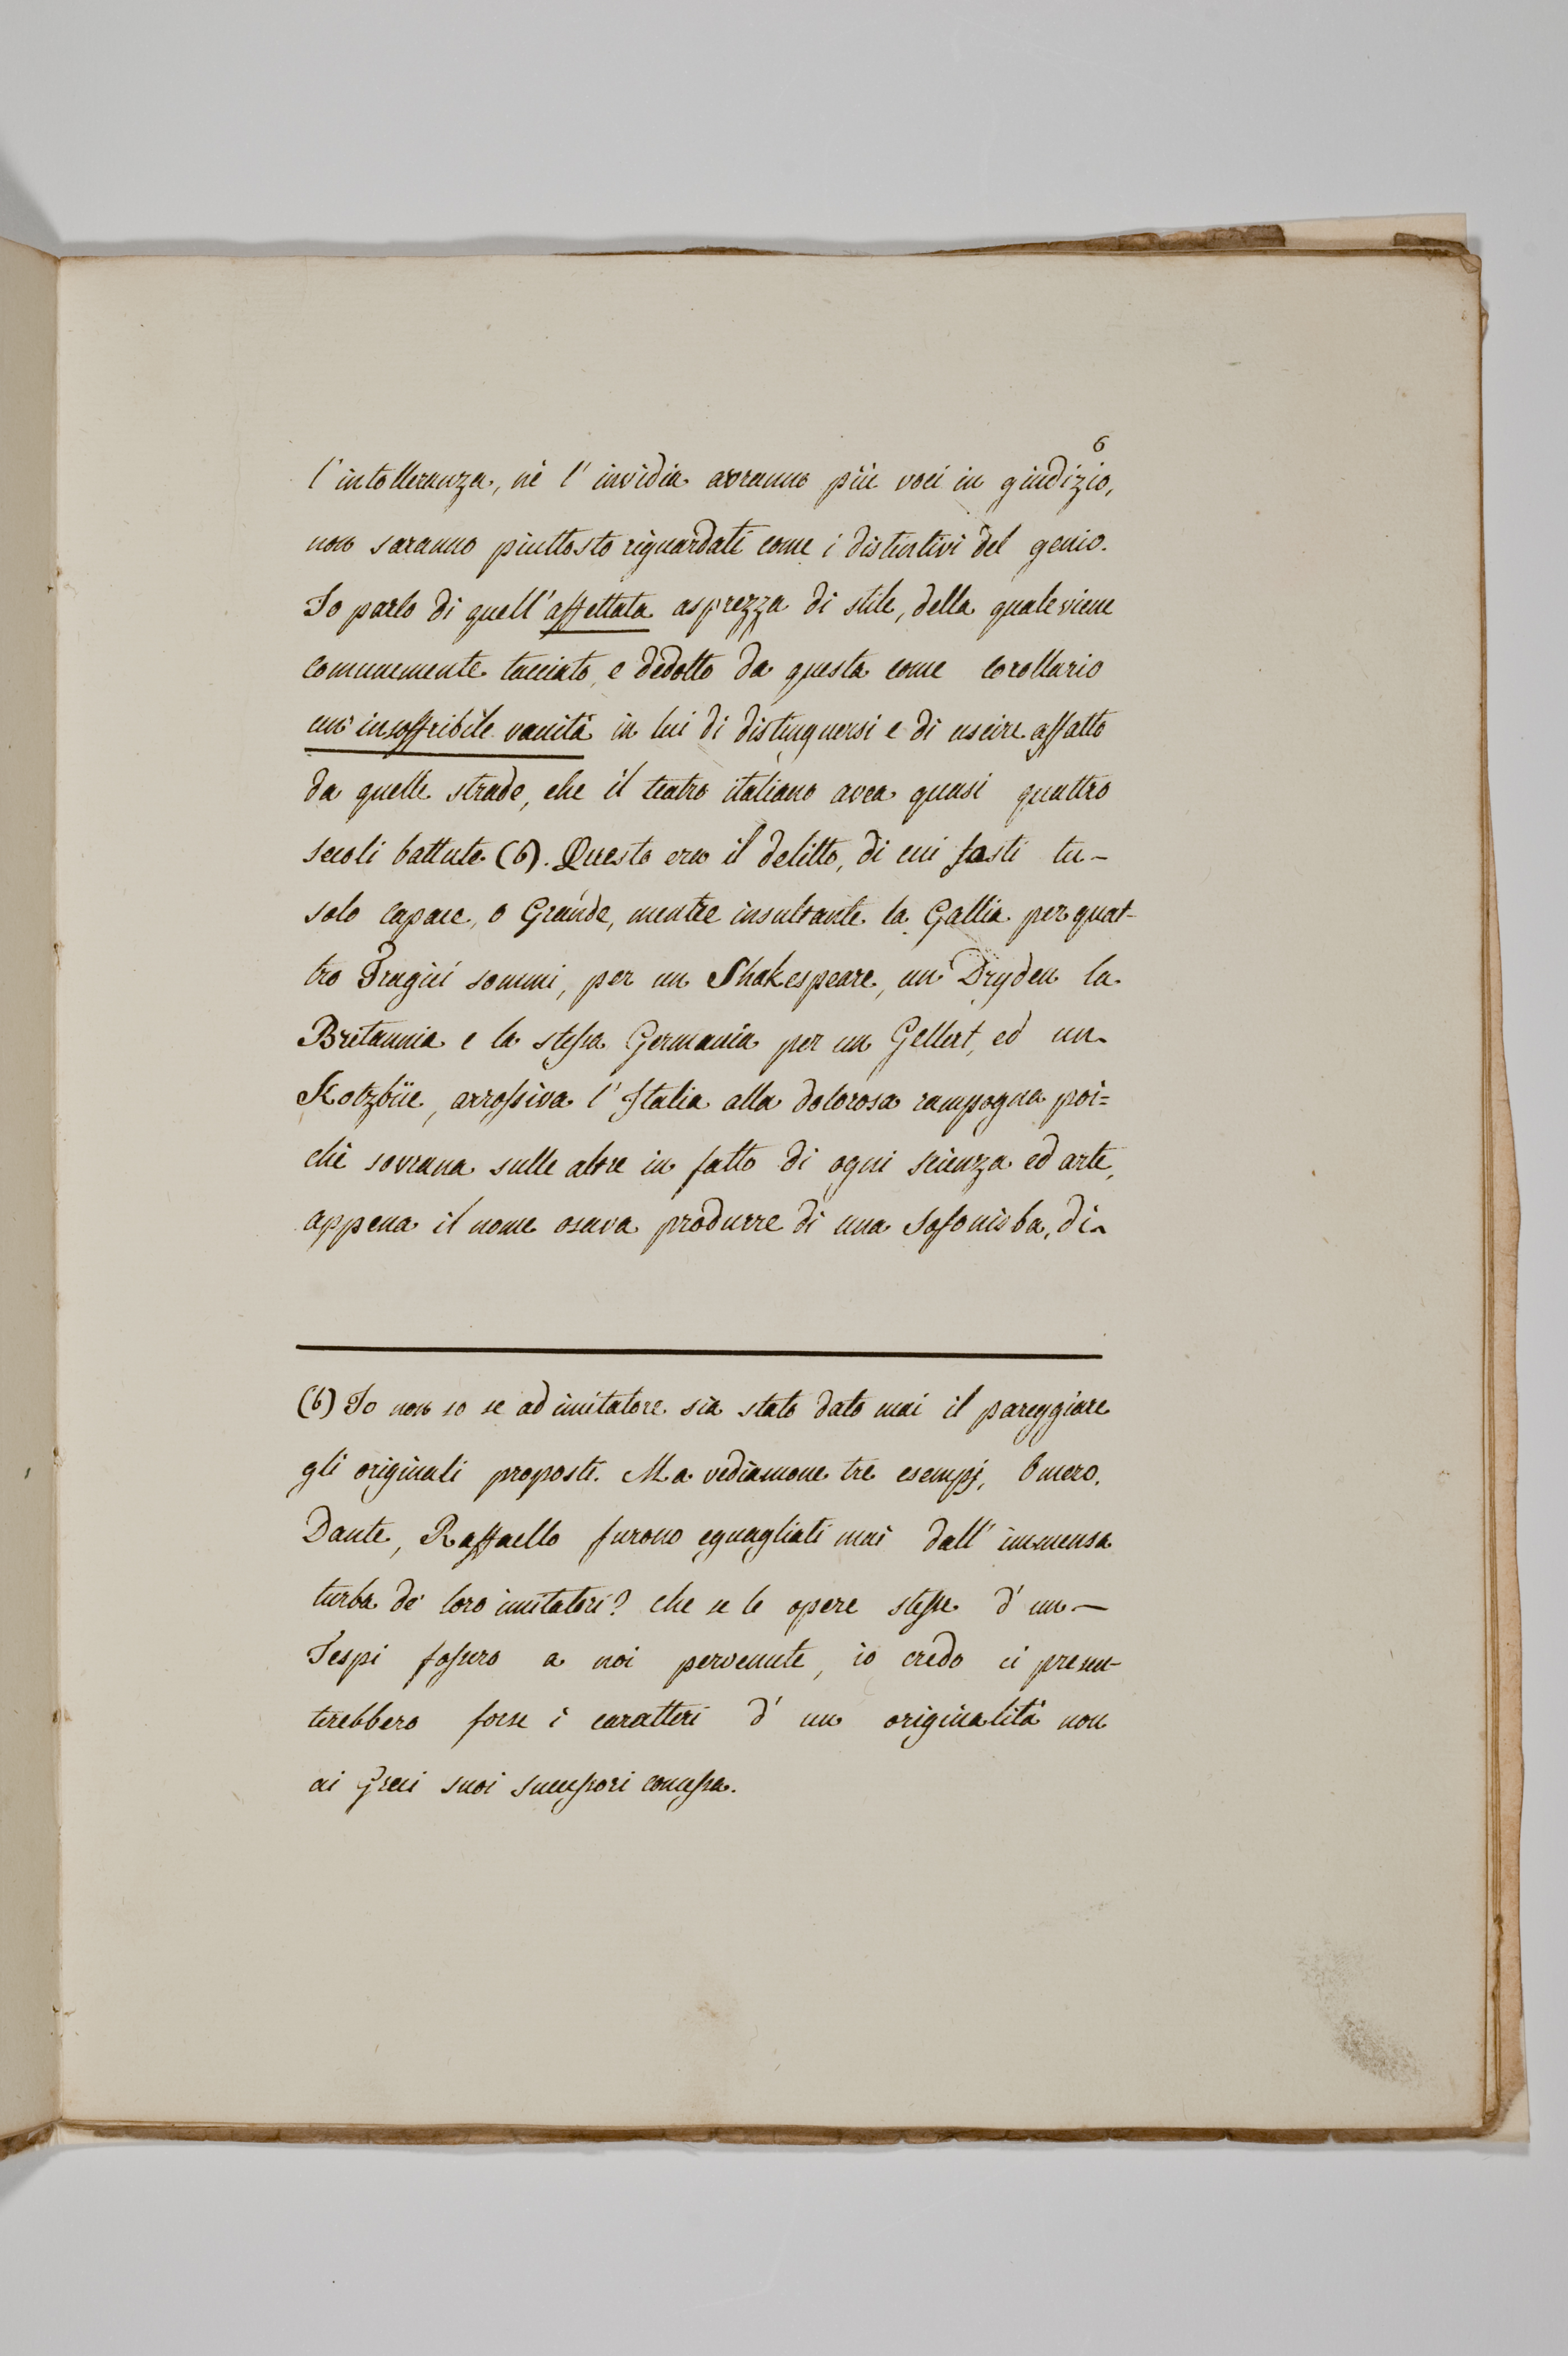 6
l'intolleranza, nè l'invidia avranno più voci in giudizio,
non saranno piuttosto riguardati come i distintivi del genio.
Io parlo di quell'affettata asprezza di stile, della quale viene
comunemente tacciato, e dedotto da questa come corollario
un'insoffribile vanità in lui di distinguersi e di uscire affatto
da quelle strade, che il teatro italiano avea quasi quattro
secoli battute (6). Questo era il delitto, di cui fosti tu-
solo capace, o Grande, mentre insultante la Gallia per quat-
tro Tragici sommi, per un Shakespeare, un Dryden la
Britannia e la stessa Germania per un Gellert, ed un
Kotzbüe, arrossiva l'Italia alla dolorosa rampogna poi=
chè sovrana sulle altre in fatto di ogni scienza ed arte,
appena il nome osava produrre di una Sofonisba, di
(6) Io non so se ad imitatore sia stato dato mai il pareggiare
gli originali proposti. Ma vediamone tre esempj, Omero,
Dante, Raffaello furono eguagliati mai dall'immensa
turba de' loro imitatori? che se le opere stesse d'un —
Tespi fossero a noi pervenute, io credo ci presen-
terebbero forse i caratteri d'un originalità non
ai Greci suoi successori concessa.